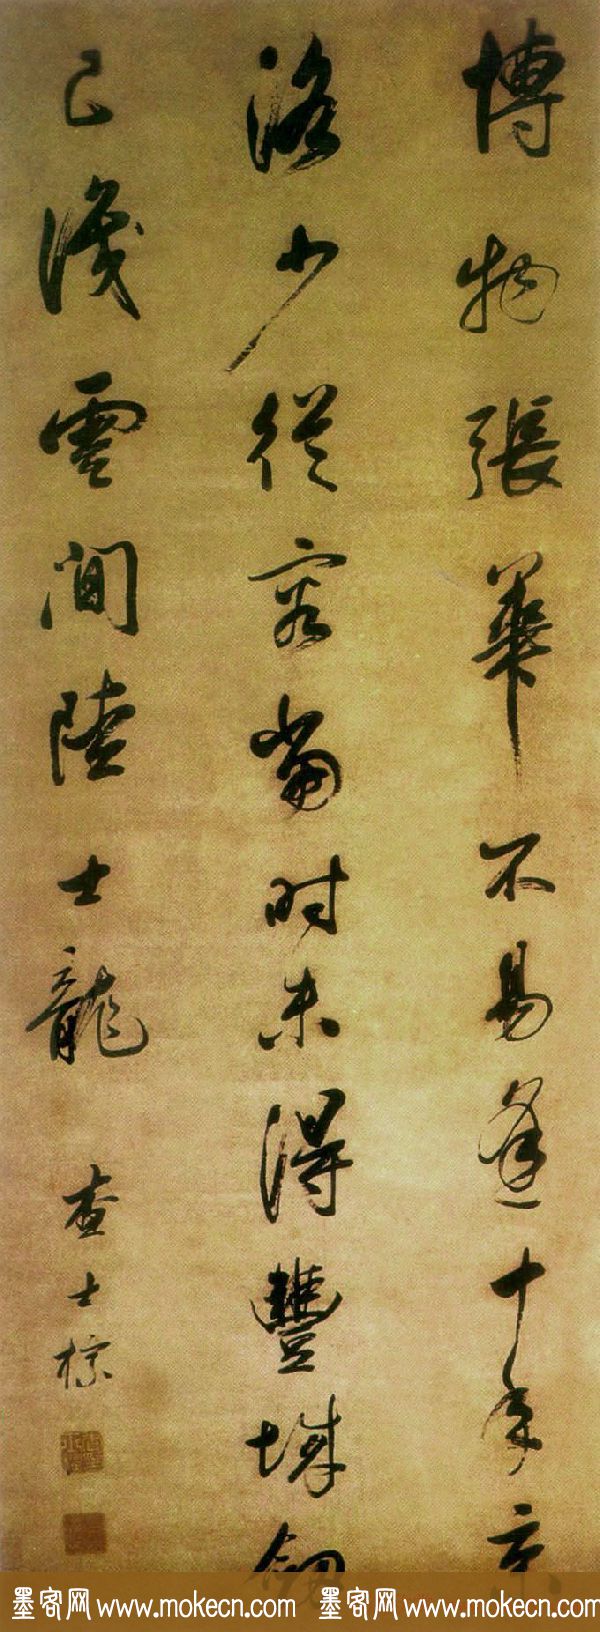 博物張華不易逢十年京
洛少從容當時未得豐城劍
已識雲間陸士龍
查士標
墨客网 www.mokecn.com 墨客网 www.mokecn.com